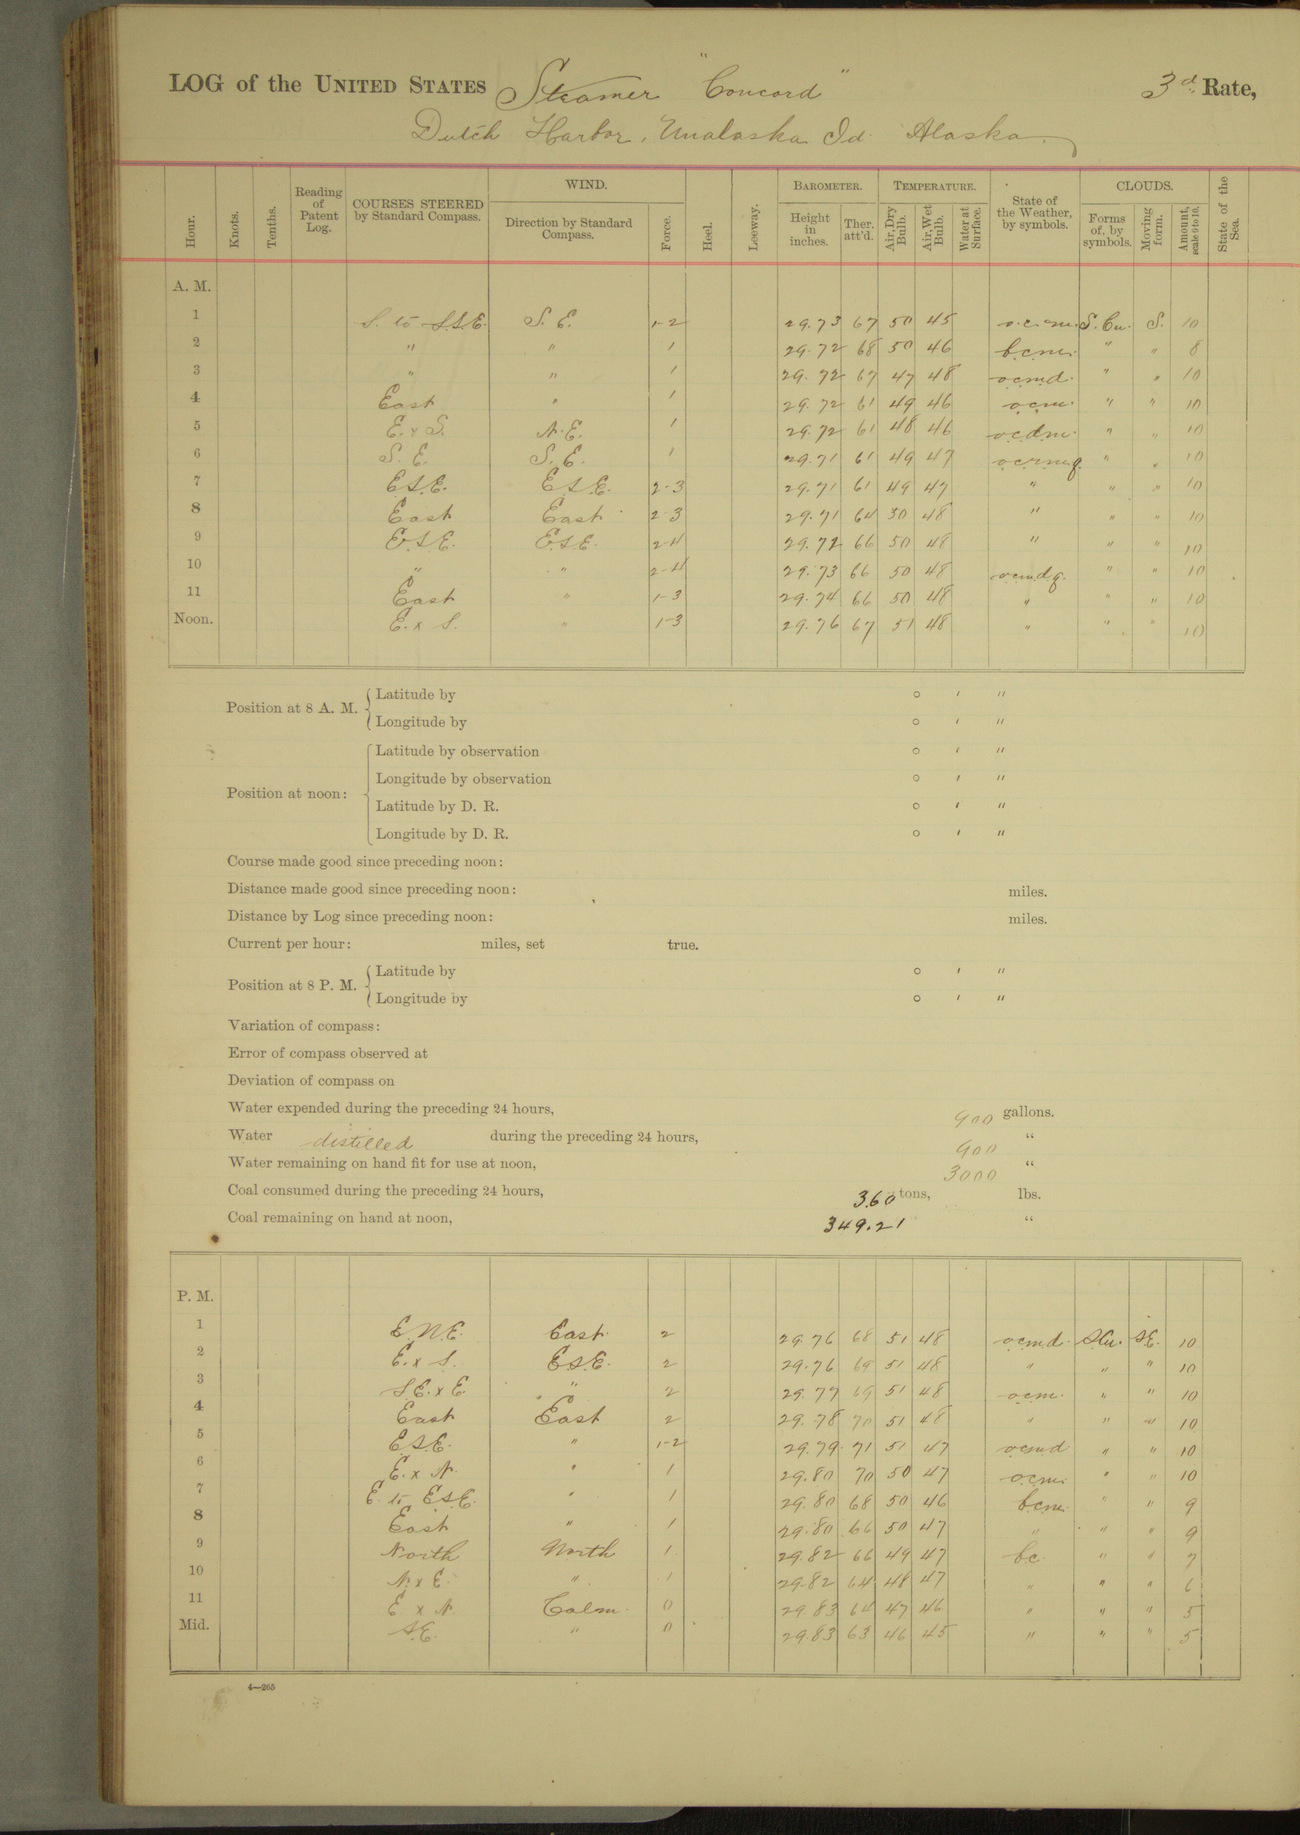 LOG of the UNITED STATES Steamer "Concord" 3d. Rate,
Dutch Harbor, Unalaska Id. Alaska.
Hour. Knots. Tenths. Reading of Patent Log. COURSES STEERED by Standard Compass. WIND. Direction by Standard Compass. Force. Heel. Leeway. BAROMETER. Height in inches. Ther. att'd. TEMPERATURE. Air, Dry Bulb. Air, Wet Bulb. Water at Surface. State of the Weather, by symbols. CLOUDS. Forms of, by symbols. Moving form. Amount, scale 0 to 10. State of the Sea.
A. M.
1 S. to S.S.E. S. E. 1-2 29.73 67 50 45 o.c.m. S.Cu. S. 10
2 " " 1 29.72 68 50 46 b.c.m. " " 8
3 " " 1 29.72 67 47 48 o.c.m.d. " " 10
4 East " 1 29.72 61 49 46 o.c.m. " " 10
5 E. x S. N.E. 1 29.72 61 48 46 o.c.d.m. " " 10
6 S. E. S. E. 1 29.71 61 49 47 o.c.r.m.q. " " 10
7 E.S.E. E.S.E. 2-3 29.71 61 49 47 " " " 10
8 East East 2-3 29.71 64 50 48 " " " 10
9 E.S.E. E.S.E. 2-4 29.72 66 50 48 " " " 10
10 " " 2-4 29.73 66 50 48 o.c.m.d.q. " " 10
11 East " 1-3 29.74 66 50 48 " " " 10
Noon. E. x S. " 1-3 29.76 67 51 48 " " " 10
Position at 8 A. M. Latitude by ° ′ ″
Longitude by ° ′ ″
Position at noon: Latitude by observation ° ′ ″
Longitude by observation ° ′ ″
Latitude by D. R. ° ′ ″
Longitude by D. R. ° ′ ″
Course made good since preceding noon:
Distance made good since preceding noon: miles.
Distance by Log since preceding noon: miles.
Current per hour: miles, set true.
Position at 8 P. M. Latitude by ° ′ ″
Longitude by ° ′ ″
Variation of compass:
Error of compass observed at
Deviation of compass on
Water expended during the preceding 24 hours, 900 gallons.
Water distilled during the preceding 24 hours, 900 "
Water remaining on hand fit for use at noon, 3000 "
Coal consumed during the preceding 24 hours, 3.60 tons, lbs.
Coal remaining on hand at noon, 349.21 "
P. M.
1 E.N.E. East 2 29.76 68 51 48 o.c.m.d. S.Cu. S.E. 10
2 E. x S. E.S.E. 2 29.76 69 51 48 " " " 10
3 S.E. x E. " 2 29.77 69 51 48 o.c.m. " " 10
4 East East 2 29.78 70 51 48 " " " 10
5 E.S.E. " 1-2 29.79 71 51 47 o.c.m.d " " 10
6 E. x N. " 1 29.80 70 50 47 o.c.m. " " 10
7 E. to E.S.E. " 1 29.80 68 50 46 b.c.m. " " 9
8 East " 1 29.80 66 50 47 " " " 9
9 North North 1 29.82 66 49 47 b.c. " " 7
10 N. x E. " 1 29.82 64 48 47 " " " 6
11 E x N Calm 0 29.83 64 47 46 " " " 5
Mid. S.E. " 0 29.83 63 46 45 " " " 5
4—265